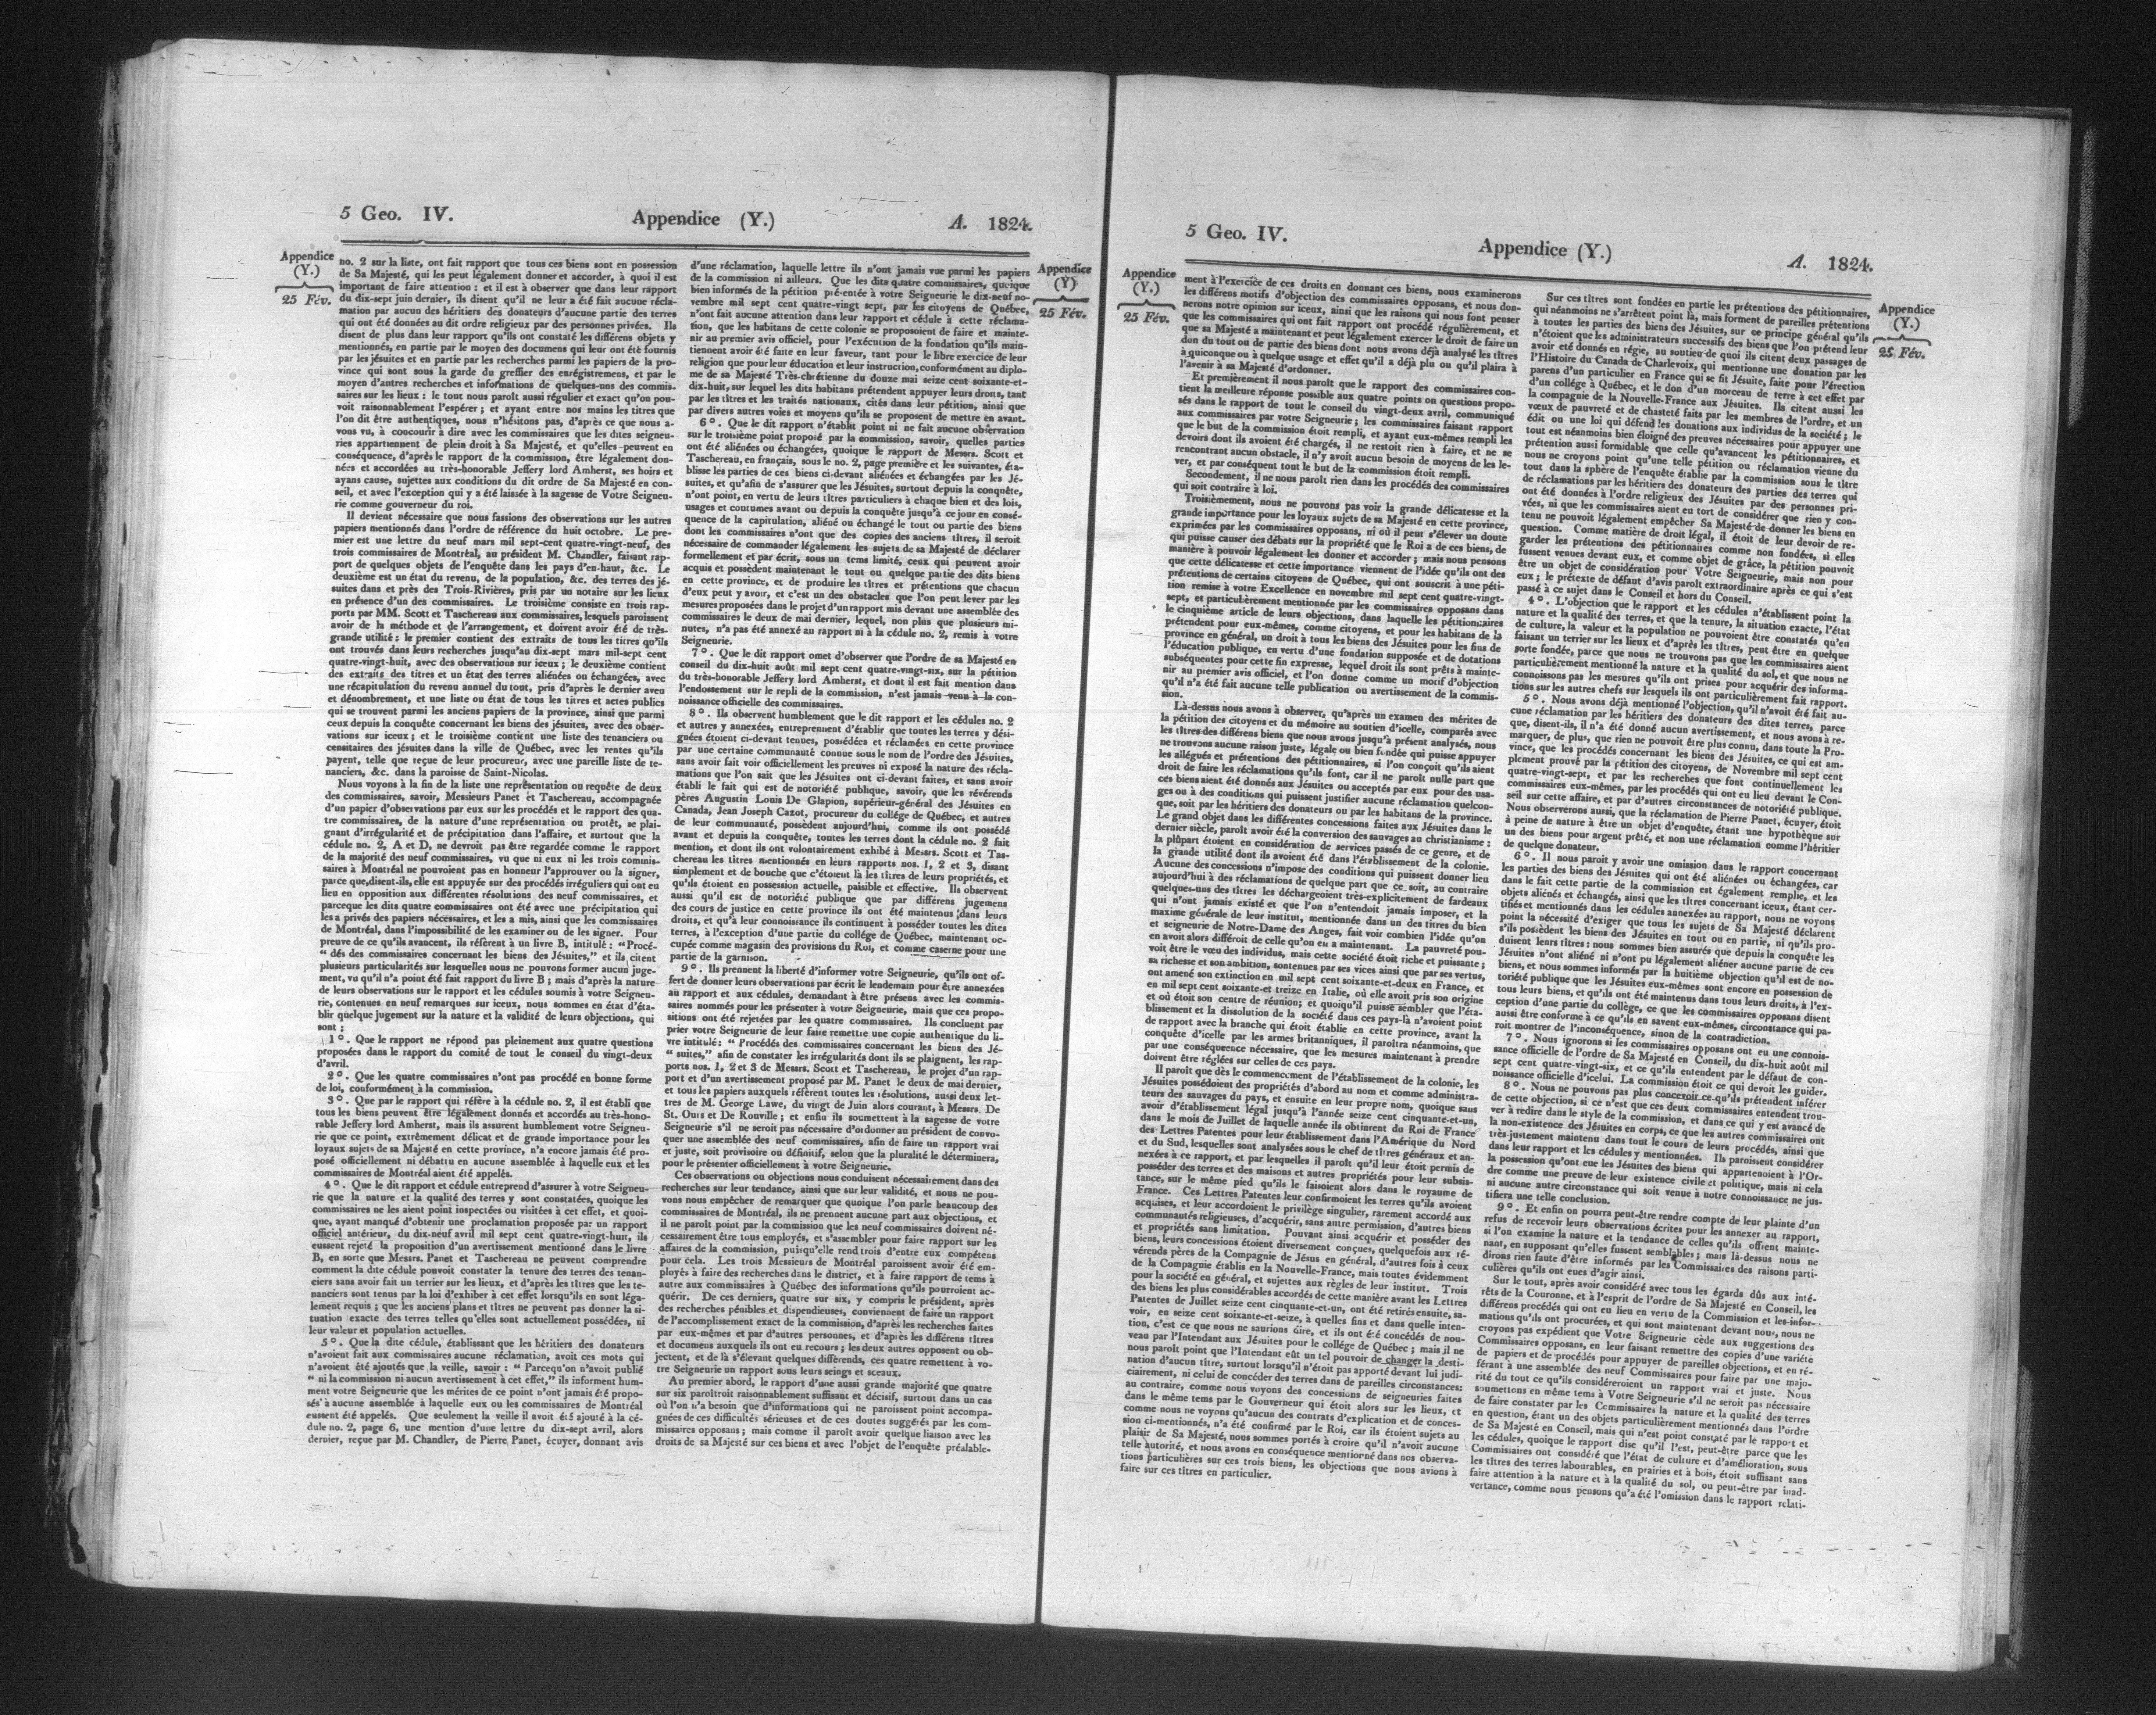 5 Geo. IV. Appendice (Y.) A. 1824.
Appendice
(Y.)
25 Fév.
no. 2 sur la liste, ont fait rapport que tous ces biens sont en possession
de Sa Majesté, qui les peut légalement donner et accorder, à quoi il est
important de faire attention : et il est à observer que dans leur rapport
du dix-sept juin dernier, ils disent qu'il ne leur a été fait aucune récla-
mation par aucun des héritiers des donateurs d'aucune partie des terres
qui ont été données au dit ordre religieux par des personnes privées. Ils
disent de plus dans leur rapport qu'ils ont constaté les différens objets y
mentionnés, en partie par le moyen des documens qui leur ont été fournis
par les jésuites et en partie par les recherches parmi les papiers de la pro-
vince qui sont sous la garde du greffier des enrégistremens, et par le
moyen d'autres recherches et informations de quelques-uns des commis-
saires sur les lieux : le tout nous paroît aussi régulier et exact qu'on pou-
voit raisonnablement l'espérer ; et ayant entre nos mains les titres que
l'on dit être authentiques, nous n'hésitons pas, d'après ce que nous a-
vons vu, à concourir à dire avec les commissaires que les dites seigneu-
ries appartiennent de plein droit à Sa Majesté, et qu'elles peuvent en
conséquence, d'après le rapport de la commission, être légalement don-
nées et accordées au très-honorable Jeffery lord Amherst, ses hoirs et
ayans cause, sujettes aux conditions du dit ordre de Sa Majesté en con-
seil, et avec l'exception qui y a été laissée à la sagesse de Votre Seigneu-
rie comme gouverneur du roi.
Il devient nécessaire que nous fassions des observations sur les autres
papiers mentionnés dans l'ordre de référence du huit octobre. Le pre-
mier est une lettre du neuf mars mil sept-cent quatre-vingt-neuf, des
trois commissaires de Montréal, au président M. Chandler, faisant rap-
port de quelques objets de l'enquête dans les pays d'en-haut, &c. Le
deuxième est un état du revenu, de la population, &c. des terres des jé-
suites dans et près des Trois-Rivières, pris par un notaire sur les lieux
en présence d'un des commissaires. Le troisième consiste en trois rap-
ports par MM. Scott et Taschereau aux commissaires, lesquels paroissent
avoir de la méthode et de l'arrangement, et doivent avoir été de très-
grande utilité : le premier contient des extraits de tous les titres qu'ils
ont trouvés dans leurs recherches jusqu'au dix-sept mars mil-sept cent
quatre-vingt-huit, avec des observations sur iceux ; le deuxième contient
des extraits des titres et un état des terres aliénées ou échangées, avec
une récapitulation du revenu annuel du tout, pris d'après le dernier aveu
et dénombrement, et une liste ou état de tous les titres et actes publics
qui se trouvent parmi les anciens papiers de la province, ainsi que parmi
ceux depuis la conquête concernant les biens des jésuites, avec des obser-
vations sur iceux ; et le troisième contient une liste des tenanciers ou
censitaires des jésuites dans la ville de Québec, avec les rentes qu'ils
payent, telle que reçue de leur procureur, avec une pareille liste de te-
nanciers, &c. dans la paroisse de Saint-Nicolas.
Nous voyons à la fin de la liste une représentation ou requête de deux
des commissaires, savoir, Messieurs Panet et Taschereau, accompagnée
d'un papier d'observations par eux sur les procédés et le rapport des qua-
tre commissaires, de la nature d'une représentation ou protêt, se plai-
gnant d'irrégularité et de précipitation dans l'affaire, et surtout que la
cédule no. 2, A et D, ne devroit pas être regardée comme le rapport
de la majorité des neuf commissaires, vu que ni eux ni les trois commis-
saires à Montréal ne pouvoient pas en honneur l'approuver ou la signer,
parce que, disent-ils, elle est appuyée sur des procédés irréguliers qui ont eu
lieu en opposition aux différentes résolutions des neuf commissaires, et
parceque les dits quatre commissaires ont été avec une précipitation qui
les a privés des papiers nécessaires, et les a mis, ainsi que les commissaires
de Montréal, dans l'impossibilité de les examiner ou de les signer. Pour
preuve de ce qu'ils avancent, ils réfèrent à un livre B, intitulé : “Procé-
“ dés des commissaires concernant les biens des Jésuites,” et ils citent
plusieurs particularités sur lesquelles nous ne pouvons former aucun juge-
ment, vu qu'il n'a point été fait rapport du livre B ; mais d'après la nature
de leurs observations sur le rapport et les cédules soumis à votre Seigneu-
rie, contenues en neuf remarques sur iceux, nous sommes en état d'éta-
blir quelque jugement sur la nature et la validité de leurs objections, qui
sont :
1°. Que le rapport ne répond pas pleinement aux quatre questions
proposées dans le rapport du comité de tout le conseil du vingt-deux
d'avril.
2°. Que les quatre commissaires n'ont pas procédé en bonne forme
de loi, conformément à la commission.
3°. Que par le rapport qui réfère à la cédule no. 2, il est établi que
tous les biens peuvent être légalement donnés et accordés au très-hono-
rable Jeffery lord Amherst, mais ils assurent humblement votre Seigneu-
rie que ce point, extrêmement délicat et de grande importance pour les
loyaux sujets de sa Majesté en cette province, n'a encore jamais été pro-
posé officiellement ni débattu en aucune assemblée à laquelle eux et les
commissaires de Montréal aient été appelés.
4°. Que le dit rapport et cédule entreprend d'assurer à votre Seigneu-
rie que la nature et la qualité des terres y sont constatées, quoique les
commissaires ne les aient point inspectées ou visitées à cet effet, et quoi-
que, ayant manqué d'obtenir une proclamation proposée par un rapport
officiel antérieur, du dix-neuf avril mil sept cent quatre-vingt-huit, ils
eussent rejeté la proposition d'un avertissement mentionné dans le livre
B, en sorte que Messrs. Panet et Taschereau ne peuvent comprendre
comment la dite cédule pouvoit constater la tenure des terres des tenan-
ciers sans avoir fait un terrier sur les lieux, et d'après les titres que les te-
nanciers sont tenus par la loi d'exhiber à cet effet lorsqu'ils en sont léga-
lement requis ; que les anciens plans et titres ne peuvent pas donner la si-
tuation exacte des terres telles qu'elles sont actuellement possédées, ni
leur valeur et population actuelles.
5°. Que la dite cédule, établissant que les héritiers des donateurs
n'avoient fait aux commissaires aucune réclamation, avoit ces mots qui
n'avoient été ajoutés que la veille, savoir : “ Parcequ'on n'avoit publié
“ ni la commission ni aucun avertissement à cet effet,” ils informent hum-
ment votre Seigneurie que les mérites de ce point n'ont jamais été propo-
sés à aucune assemblée à laquelle eux ou les commissaires de Montréal
eussent été appelés. Que seulement la veille il avoit été ajouté à la cé-
dule no. 2, page 6, une mention d'une lettre du dix-sept avril, alors
dernier, reçue par M. Chandler, de Pierre Panet, écuyer, donnant avis
d'une réclamation, laquelle lettre ils n'ont jamais vue parmi les papiers
de la commission ni ailleurs. Que les dits quatre commissaires, quoique
bien informés de la pétition présentée à votre Seigneurie le dix-neuf no-
vembre mil sept cent quatre-vingt sept, par les citoyens de Québec,
n'ont fait aucune attention dans leur rapport et cédule à cette réclama-
tion, que les habitans de cette colonie se proposoient de faire et mainte-
nir au premier avis officiel, pour l'exécution de la fondation qu'ils main-
tiennent avoir été faite en leur faveur, tant pour le libre exercice de leur
religion que pour leur éducation et leur instruction, conformément au diplo-
me de sa Majesté Très-chrétienne du douze mai seize cent soixante-et-
dix-huit, sur lequel les dits habitans prétendent appuyer leurs droits, tant
par les titres et les traités nationaux, cités dans leur pétition, ainsi que
par divers autres voies et moyens qu'ils se proposent de mettre en avant.
6°. Que le dit rapport n'établit point ni ne fait aucune observation
sur le troisième point proposé par la commission, savoir, quelles parties
ont été aliénées ou échangées, quoique le rapport de Messrs. Scott et
Taschereau, en français, sous le no. 2, page première et les suivantes, éta-
blisse les parties de ces biens ci-devant aliénées et échangées par les Jé-
suites, et qu'afin de s'assurer que les Jésuites, surtout depuis la conquête,
n'ont point, en vertu de leurs titres particuliers à chaque bien et des lois,
usages et coutumes avant ou depuis la conquête jusqu'à ce jour en consé-
quence de la capitulation, aliéné ou échangé le tout ou partie des biens
dont les commissaires n'ont que des copies des anciens titres, il seroit
nécessaire de commander légalement les sujets de sa Majesté de déclarer
formellement et par écrit, sous un tems limité, ceux qui peuvent avoir
acquis et possèdent maintenant le tout ou quelque partie des dits biens
en cette province, et de produire les titres et prétentions que chacun
d'eux peut y avoir, et c'est un des obstacles que l'on peut lever par les
mesures proposées dans le projet d'un rapport mis devant une assemblée des
commissaires le deux de mai dernier, lequel, non plus que plusieurs mi-
nutes, n'a pas été annexé au rapport ni à la cédule no. 2, remis à votre
Seigneurie.
7°. Que le dit rapport omet d'observer que l'ordre de sa Majesté en
conseil du dix-huit août mil sept cent quatre-vingt-six, sur la pétition
du très-honorable Jeffery lord Amherst, et dont il est fait mention dans
l'endossement sur le repli de la commission, n'est jamais venu à la con-
noissance officielle des commissaires.
8°. Ils observent humblement que le dit rapport et les cédules no. 2
et autres y annexées, entreprennent d'établir que toutes les terres y dési-
gnées étoient ci-devant tenues, possédées et réclamées en cette province
par une certaine communauté connue sous le nom de l'ordre des Jésuites,
sans avoir fait voir officiellement les preuves ni exposé la nature des récla-
mations que l'on sait que les Jésuites ont ci-devant faites, et sans avoir
établi le fait qui est de notoriété publique, savoir, que les révérends
pères Augustin Louis De Glapion, supérieur-général des Jésuites en
Canada, Jean Joseph Cazot, procureur du collége de Québec, et autres
de leur communauté, possèdent aujourd'hui, comme ils ont possédé
avant et depuis la conquête, toutes les terres dont la cédule no. 2 fait
mention, et dont ils ont volontairement exhibé à Messrs. Scott et Tas-
chereau les titres mentionnés en leurs rapports nos. 1, 2 et 3, disant
simplement et de bouche que c'étoient là les titres de leurs propriétés, et
qu'ils étoient en possession actuelle, paisible et effective. Ils observent
aussi qu'il est de notoriété publique que par différens jugemens
des cours de justice en cette province ils ont été maintenus dans leurs
droits, et qu'à leur connoissance ils continuent à posséder toutes les dites
terres, à l'exception d'une partie du collége de Québec, maintenant oc-
cupée comme magasin des provisions du Roi, et comme caserne pour une
partie de la garnison.
9°. Ils prennent la liberté d'informer votre Seigneurie, qu'ils ont of-
fert de donner leurs observations par écrit le lendemain pour être annexées
au rapport et aux cédules, demandant à être présens avec les commis-
saires nommés pour les présenter à votre Seigneurie, mais que ces propo-
sitions ont été rejetées par les quatre commissaires. Ils concluent par
prier votre Seigneurie de leur faire remettre une copie authentique du li-
vre intitulé : “ Procédés des commissaires concernant les biens des Jé-
“ suites,” afin de constater les irrégularités dont ils se plaignent, les rap-
ports nos. 1, 2 et 3 de Messrs. Scott et Taschereau, le projet d'un rap-
port et d'un avertissement proposé par M. Panet le deux de mai dernier,
et tous les papiers auxquels réfèrent toutes les résolutions, aussi deux let-
tres de M. George Lawe, du vingt de Juin alors courant, à Messrs. De
St. Ours et De Rouville ; et enfin ils soumettent à la sagesse de votre
Seigneurie s'il ne seroit pas nécessaire d'ordonner au président de convo-
quer une assemblée des neuf commissaires, afin de faire un rapport vrai
et juste, soit provisoire ou définitif, selon que la pluralité le déterminera,
pour le présenter officiellement à votre Seigneurie.
Ces observations ou objections nous conduisent nécessairement dans des
recherches sur leur tendance, ainsi que sur leur validité, et nous ne pou-
vons nous empêcher de remarquer que quoique l'on parle beaucoup des
commissaires de Montréal, ils ne prennent aucune part aux objections, et
il ne paroît point par la commission que les neuf commissaires doivent né-
cessairement être tous employés, et s'assembler pour faire rapport sur les
affaires de la commission, puisqu'elle rend trois d'entre eux compétens
pour cela. Les trois Messieurs de Montréal paroissent avoir été em-
ployés à faire des recherches dans le district, et à faire rapport de tems à
autre aux commissaires à Québec des informations qu'ils pourroient ac-
quérir. De ces derniers, quatre sur six, y compris le président, après
des recherches pénibles et dispendieuses, conviennent de faire un rapport
de l'accomplissement exact de la commission, d'après les recherches faites
par eux-mêmes et par d'autres personnes, et d'après les différens titres
et documens auxquels ils ont eu recours ; les deux autres opposent ou ob-
jectent, et de là s'élevant quelques différends, ces quatre remettent à vo-
tre Seigneurie un rapport sous leurs seings et sceaux.
Au premier abord, le rapport d'une aussi grande majorité que quatre
sur six paroîtroit raisonnablement suffisant et décisif, surtout dans un cas
où l'on n'a besoin que d'informations qui ne paroissent point accompa-
gnées de ces difficultés sérieuses et de ces doutes suggérés par les com-
missaires opposans ; mais comme il paroît avoir quelque liaison avec les
droits de sa Majesté sur ces biens et avec l'objet de l'enquête préalable-
Appendice
(Y)
25 Fév.
5 Geo. IV. Appendice (Y.) A. 1824.
Appendice
(Y.)
25 Fév.
ment à l'exercice de ces droits en donnant ces biens, nous examinerons
les différens motifs d'objection des commissaires opposans, et nous don-
nerons notre opinion sur iceux, ainsi que les raisons qui nous font penser
que les commissaires qui ont fait rapport ont procédé régulièrement, et
que sa Majesté a maintenant et peut légalement exercer le droit de faire un
don du tout ou de partie des biens dont nous avons déjà analysé les titres
à quiconque ou à quelque usage et effet qu'il a déjà plu ou qu'il plaira à
l'avenir à sa Majesté d'ordonner.
Et premièrement il nous paroît que le rapport des commissaires con-
tient la meilleure réponse possible aux quatre points on questions propo-
sés dans le rapport de tout le conseil du vingt-deux avril, communiqué
aux commissaires par votre Seigneurie ; les commissaires faisant rapport
que le but de la commission étoit rempli, et ayant eux-mêmes rempli les
devoirs dont ils avoient été chargés, il ne restoit rien à faire, et ne se
rencontrant aucun obstacle, il n'y avoit aucun besoin de moyens de les le-
ver, et par conséquent tout le but de la commission étoit rempli.
Secondement, il ne nous paroît rien dans les procédés des commissaires
qui soit contraire à loi.
Troisièmement, nous ne pouvons pas voir la grande délicatesse et la
grande importance pour les loyaux sujets de sa Majesté en cette province,
exprimées par les commissaires opposans, ni où il peut s'élever un doute
qui puisse causer des débats sur la propriété que le Roi a de ces biens, de
manière à pouvoir légalement les donner et accorder ; mais nous pensons
que cette délicatesse et cette importance viennent de l'idée qu'ils ont des
prétentions de certains citoyens de Québec, qui ont souscrit à une péti-
tion remise à votre Excellence en novembre mil sept cent quatre-vingt-
sept, et particulièrement mentionnée par les commissaires opposans dans
le cinquième article de leurs objections, dans laquelle les pétitionnaires
prétendent pour eux-mêmes, comme citoyens, et pour les habitans de la
province en général, un droit à tous les biens des Jésuites pour les fins de
l'éducation publique, en vertu d'une fondation supposée et de dotations
subséquentes pour cette fin expresse, lequel droit ils sont prêts à mainte-
nir au premier avis officiel, et l'on donne comme un motif d'objection
qu'il n'a été fait aucune telle publication ou avertissement de la commis-
sion.
Là-dessus nous avons à observer, qu'après un examen des mérites de
la pétition des citoyens et du mémoire au soutien d'icelle, comparés avec
les titres des différens biens que nous avons jusqu'à présent analysés, nous
ne trouvons aucune raison juste, légale ou bien fondée qui puisse appuyer
les allégués et prétentions des pétitionnaires, si l'on conçoit qu'ils aient
droit de faire les réclamations qu'ils font, car il ne paroît nulle part que
ces biens aient été donnés aux Jésuites ou acceptés par eux pour des usa-
ges ou à des conditions qui puissent justifier aucune réclamation quelcon-
que, soit par les héritiers des donateurs ou par les habitans de la province.
Le grand objet dans les différentes concessions faites aux Jésuites dans le
dernier siècle, paroît avoir été la conversion des sauvages au christianisme :
la plûpart étoient en considération de services passés de ce genre, et de
la grande utilité dont ils avoient été dans l'établissement de la colonie.
Aucune des concessions n'impose des conditions qui puissent donner lieu
aujourd'hui à des réclamations de quelque part que ce soit, au contraire
quelques-uns des titres les déchargeoient très-explicitement de fardeaux
qui n'ont jamais existé et que l'on n'entendoit jamais imposer, et la
maxime générale de leur institut, mentionnée dans un des titres du bien
et seigneurie de Notre-Dame des Anges, fait voir combien l'idée qu'on
en avoit alors différoit de celle qu'on en a maintenant. La pauvreté pou-
voit être le vœu des individus, mais cette société étoit riche et puissante ;
sa richesse et son ambition, soutenues par ses vices ainsi que par ses vertus,
ont amené son extinction en mil sept cent soixante-et-deux en France, et
en mil sept cent soixante-et treize en Italie, où elle avoit pris son origine
et où étoit son centre de réunion; et quoiqu'il puisse sembler que l'éta-
blissement et la dissolution de la société dans ces pays-là n'avoient point
de rapport avec la branche qui étoit établie en cette province, avant la
conquête d'icelle par les armes britanniques, il paroîtra néanmoins, que
par une conséqueence nécessaire, que les mesures maintenant à prendre
doivent être réglées sur celles de ces pays.
Il paroît que dès le commencement de l'établissement de la colonie, les
Jésuites possédoient des propriétés d'abord au nom et comme administra-
teurs des sauvages du pays, et ensuite en leur propre nom, quoique sans
avoir d'établissement légal jusqu'à l'année seize cent cinquante-et-un,
dans le mois de Juillet de laquelle année ils obtinrent du Roi de France
des Lettres Patentes pour leur établissement dans l'Amérique du Nord
et du Sud, lesquelles sont analysées sous le chef de titres généraux et an-
nexées à ce rapport, et par lesquelles il paroît qu'il leur étoit permis de
posséder des terres et des maisons et autres propriétés pour leur subsis-
tance, sur le même pied qu'ils le faisoient alors dans le royaume de
France. Ces Lettres Patentes leur confirmoient les terres qu'ils avoient
acquises, et leur accordoient le privilège singulier, rarement accordé aux
communautés religieuses, d'acquérir, sans autre permission, d'autres biens
et propriétés sans limitation. Pouvant ainsi acquérir et posséder des
biens, leurs concessions étoient diversement conçues, quelquefois aux ré-
vérends pères de la Compagnie de Jésus en général, d'autres fois à ceux
de la Compagnie établis en la Nouvelle-France, mais toutes évidemment
pour la société en général, et sujettes aux règles de leur institut. Trois
des biens les plus considérables accordés de cette manière avant les Lettres
Patentes de Juillet seize cent cinquante-et-un, ont été retirés ensuite, sa-
voir, en seize cent soixante-et-seize, à quelles fins et dans quelle inten-
tion, c'est ce que nous ne saurions dire, et ils ont été concédés de nou-
veau par l'Intendant aux Jésuites pour le collége de Québec ; mais il ne
nous paroît point que l'Intendant eût un tel pouvoir de changer la desti-
nation d'aucun titre, surtout lorsqu'il n'étoit pas apporté devant lui judi-
ciairement, ni celui de concéder des terres dans de pareilles circonstances:
au contraire, comme nous voyons des concessions de seigneuries faites
dans le même tems par le Gouverneur qui étoit alors sur les lieux, et
comme nous ne voyons qu'aucun des contrats d'explication et de conces-
sion ci-mentionnés, n'a été confirmé par le Roi, car ils étoient sujets au
plaisir de Sa Majesté, nous sommes portés à croire qu'il n'avoit aucune
telle autorité, et nous avons en conséquence mentionné dans nos observa-
tions particulières sur ces trois biens, les objections que nous avions à
faire sur ces titres en particulier.
Sur ces titres sont fondées en partie les prétentions des pétitionnaires,
qui néanmoins ne s'arrêtent point là, mais forment de pareilles prétentions
à toutes les parties des biens des Jésuites, sur ce principe général qu'ils
n'étoient que les administrateurs successifs des biens que l'on prétend leur
avoir été donnés en régie, au soutien de quoi ils citent deux passages de
l'Histoire du Canada de Charlevoix, qui mentionne une donation par les
parens d'un particulier en France qui se fit Jésuite, faite pour l'érection
d'un collége à Québec, et le don d'un morceau de terre à cet effet par
la compagnie de la Nouvelle-France aux Jésuites. Ils citent aussi les
vœux de pauvreté et de chasteté faits par les membres de l'ordre, et un
édit ou une loi qui défend les donations aux individus de la société ; le
tout est néanmoins bien éloigné des preuves nécessaires pour appuyer une
prétention aussi formidable que celle qu'avancent les pétitionnaires, et
nous ne croyons point qu'une telle pétition ou réclamation vienne du
tout dans la sphère de l'enquête établie par la commission sous le titre
de réclamations par les héritiers des donateurs des parties des terres qui
ont été données à l'ordre religieux des Jésuites par des personnes pri-
vées, ni que les commissaires aient eu tort de considérer que rien y con-
tenu ne pouvoit légalement empêcher Sa Majesté de donner les biens en
question. Comme matière de droit légal, il étoit de leur devoir de re-
garder les prétentions des pétitionnaires comme non fondées, si elles
fussent venues devant eux, et comme objet de grâce, la pétition pouvoit
être un objet de considération pour Votre Seigneurie, mais non pour
eux ; le prétexte de défaut d'avis paroît extraordinaire après ce qui s'est
passé à ce sujet dans le Conseil et hors du Conseil.
4°. L'objection que le rapport et les cédules n'établissent point la
nature et la qualité des terres, et que la tenure, la situation exacte, l'état
de culture, la valeur et la population ne pouvoient être constatés qu'en
faisant un terrier sur les lieux et d'après les titres, peut être en quelque
sorte fondée, parce que nous ne trouvons pas que les commissaires aient
particulièrement mentionné la nature et la qualité du sol, et que nous ne
connoissons pas les mesures qu'ils ont prises pour acquérir des informa-
tions sur les autres chefs sur lesquels ils ont particulièrement fait rapport.
5°. Nous avons déjà mentionné l'objection, qu'il n'avoit été fait au-
cune réclamation par les héritiers des donateurs des dites terres, parce
que, disent-ils, il n'a été donné aucun avertissement, et nous avons à re-
marquer, de plus, que rien ne pouvoit être plus connu, dans toute la Pro-
vince, que les procédés concernant les biens des Jésuites, ce qui est am-
plement prouvé par la pétition des citoyens, de Novembre mil sept cent
quatre-vingt-sept, et par les recherches que font continuellement les
commissaires eux-mêmes, par les procédés qui ont eu lieu devant le Con-
seil sur cette affaire, et par d'autres circonstances de notoriété publique.
Nous observerons aussi, que la réclamation de Pierre Panet, écuyer, étoit
à peine de nature à être un objet d'enquête, étant une hypothèque sur
un des biens pour argent prêté, et non une réclamation comme l'héritier
de quelque donateur.
6°. Il nous paroit y avoir une omission dans le rapport concernant
les parties des biens des Jésuites qui ont été aliénées ou échangées, car
dans le fait cette partie de la commission est également remplie, et les
objets aliénés et échangés, ainsi que les titres concernant iceux, étant cer-
tifiés et mentionnés dans les cédules annexées au rapport, nous ne voyons
point la nécessité d'exiger que tous les sujets de Sa Majesté déclarent
s'ils possèdent les biens des Jésuites en tout ou en partie, ni qu'ils pro-
duisent leurs titres : nous sommes bien assurés que depuis la conquête les
Jésuites n'ont aliéné ni n'ont pu légalement aliéner aucune partie de ces
biens, et nous sommes informés par la huitième objection qu'il est de no-
toriété publique que les Jésuites eux-mêmes sont encore en possession de
tous leurs biens, et qu'ils ont été maintenus dans tous leurs droits, à l'ex-
ception d'une partie du collège, ce que les commissaires opposans disent
aussi être conforme à ce qu'ils en savent eux-mêmes, circonstance qui pa-
roit montrer de l'inconséquence, sinon de la contradiction.
7°. Nous ignorons si les commissaires opposans ont eu une connois-
sance officielle de l'ordre de Sa Majesté en Conseil, du dix-huit août mil
sept cent quatre-vingt-six, et ce qu'ils entendent par le défaut de con-
noissance officielle d'icelui. La commission étoit ce qui devoit les guider.
8°. Nous ne pouvons pas plus concevoir ce qu'ils prétendent inférer
de cette objection, si ce n'est que ces deux commissaires entendent trou-
ver à redire dans le style de la commission, et dans ce qui y est avancé de
la non-existence des Jésuites en corps, ce que les autres commissaires ont
très-justement maintenu dans tout le cours de leurs procédés, ainsi que
dans leur rapport et les cédules y mentionnées. Ils paroissent considérer
la possession qu'ont eue les Jésuites des biens qui appartenoient à l'Or-
dre comme une preuve de leur existence civile et politique, mais ni cela
ni aucune autre circonstance qui soit venue à notre connoissance ne jus-
tifiera une telle conclusion.
9°. Et enfin on pourra peut-être rendre compte de leur plainte d'un
refus de recevoir leurs observations écrites pour les annexer au rapport,
si l'on examine la nature et la tendance de celles qu'ils offrent mainte-
nant, en supposant qu'elles fussent semblables ; mais là-dessus nous ne
dirons rien faute d'être informés par les Commissaires des raisons parti-
culières qu'ils ont eues d'agir ainsi.
Sur le tout, après avoir considéré avec tous les égards dûs aux inté-
rêts de la Couronne, et à l'esprit de l'ordre de Sa Majesté en Conseil, les
différens procédés qui ont eu lieu en vertu de la Commission et les infor-
mations qu'ils ont procurées, et qui sont maintenant devant nous, nous ne
croyons pas expédient que Votre Seigneurie cède aux suggestions des
Commissaires opposans, en leur faisant remettre des copies d'une variété
de papiers et de procédés pour appuyer de pareilles objections, et en ré-
férant à une assemblée des neuf Commissaires pour faire par une majo-
rité du tout ce qu'ils considéreroient un rapport vrai et juste. Nous
soumettons en même tems à Votre Seigneurie s'il ne seroit pas nécessaire
de faire constater par les Commissaires la nature et la qualité des terres
en question, étant un des objets particulièrement mentionnés dans l'ordre
de Sa Majesté en Conseil, mais qui n'est point constaté par le rapport et
les cédules, quoique le rapport dise qu'il l'est, peut-être parce que les
Commissaires ont considéré que l'état de culture et d'amélioration, sous
les titres des terres labourables, en prairies et à bois, étoit suffisant sans
faire attention à la nature et à la qualité du sol, ou peut-être par inad-
vertance, comme nous pensons qu'a été l'omission dans le rapport relati-
Appendice
(Y.)
25 Fév.